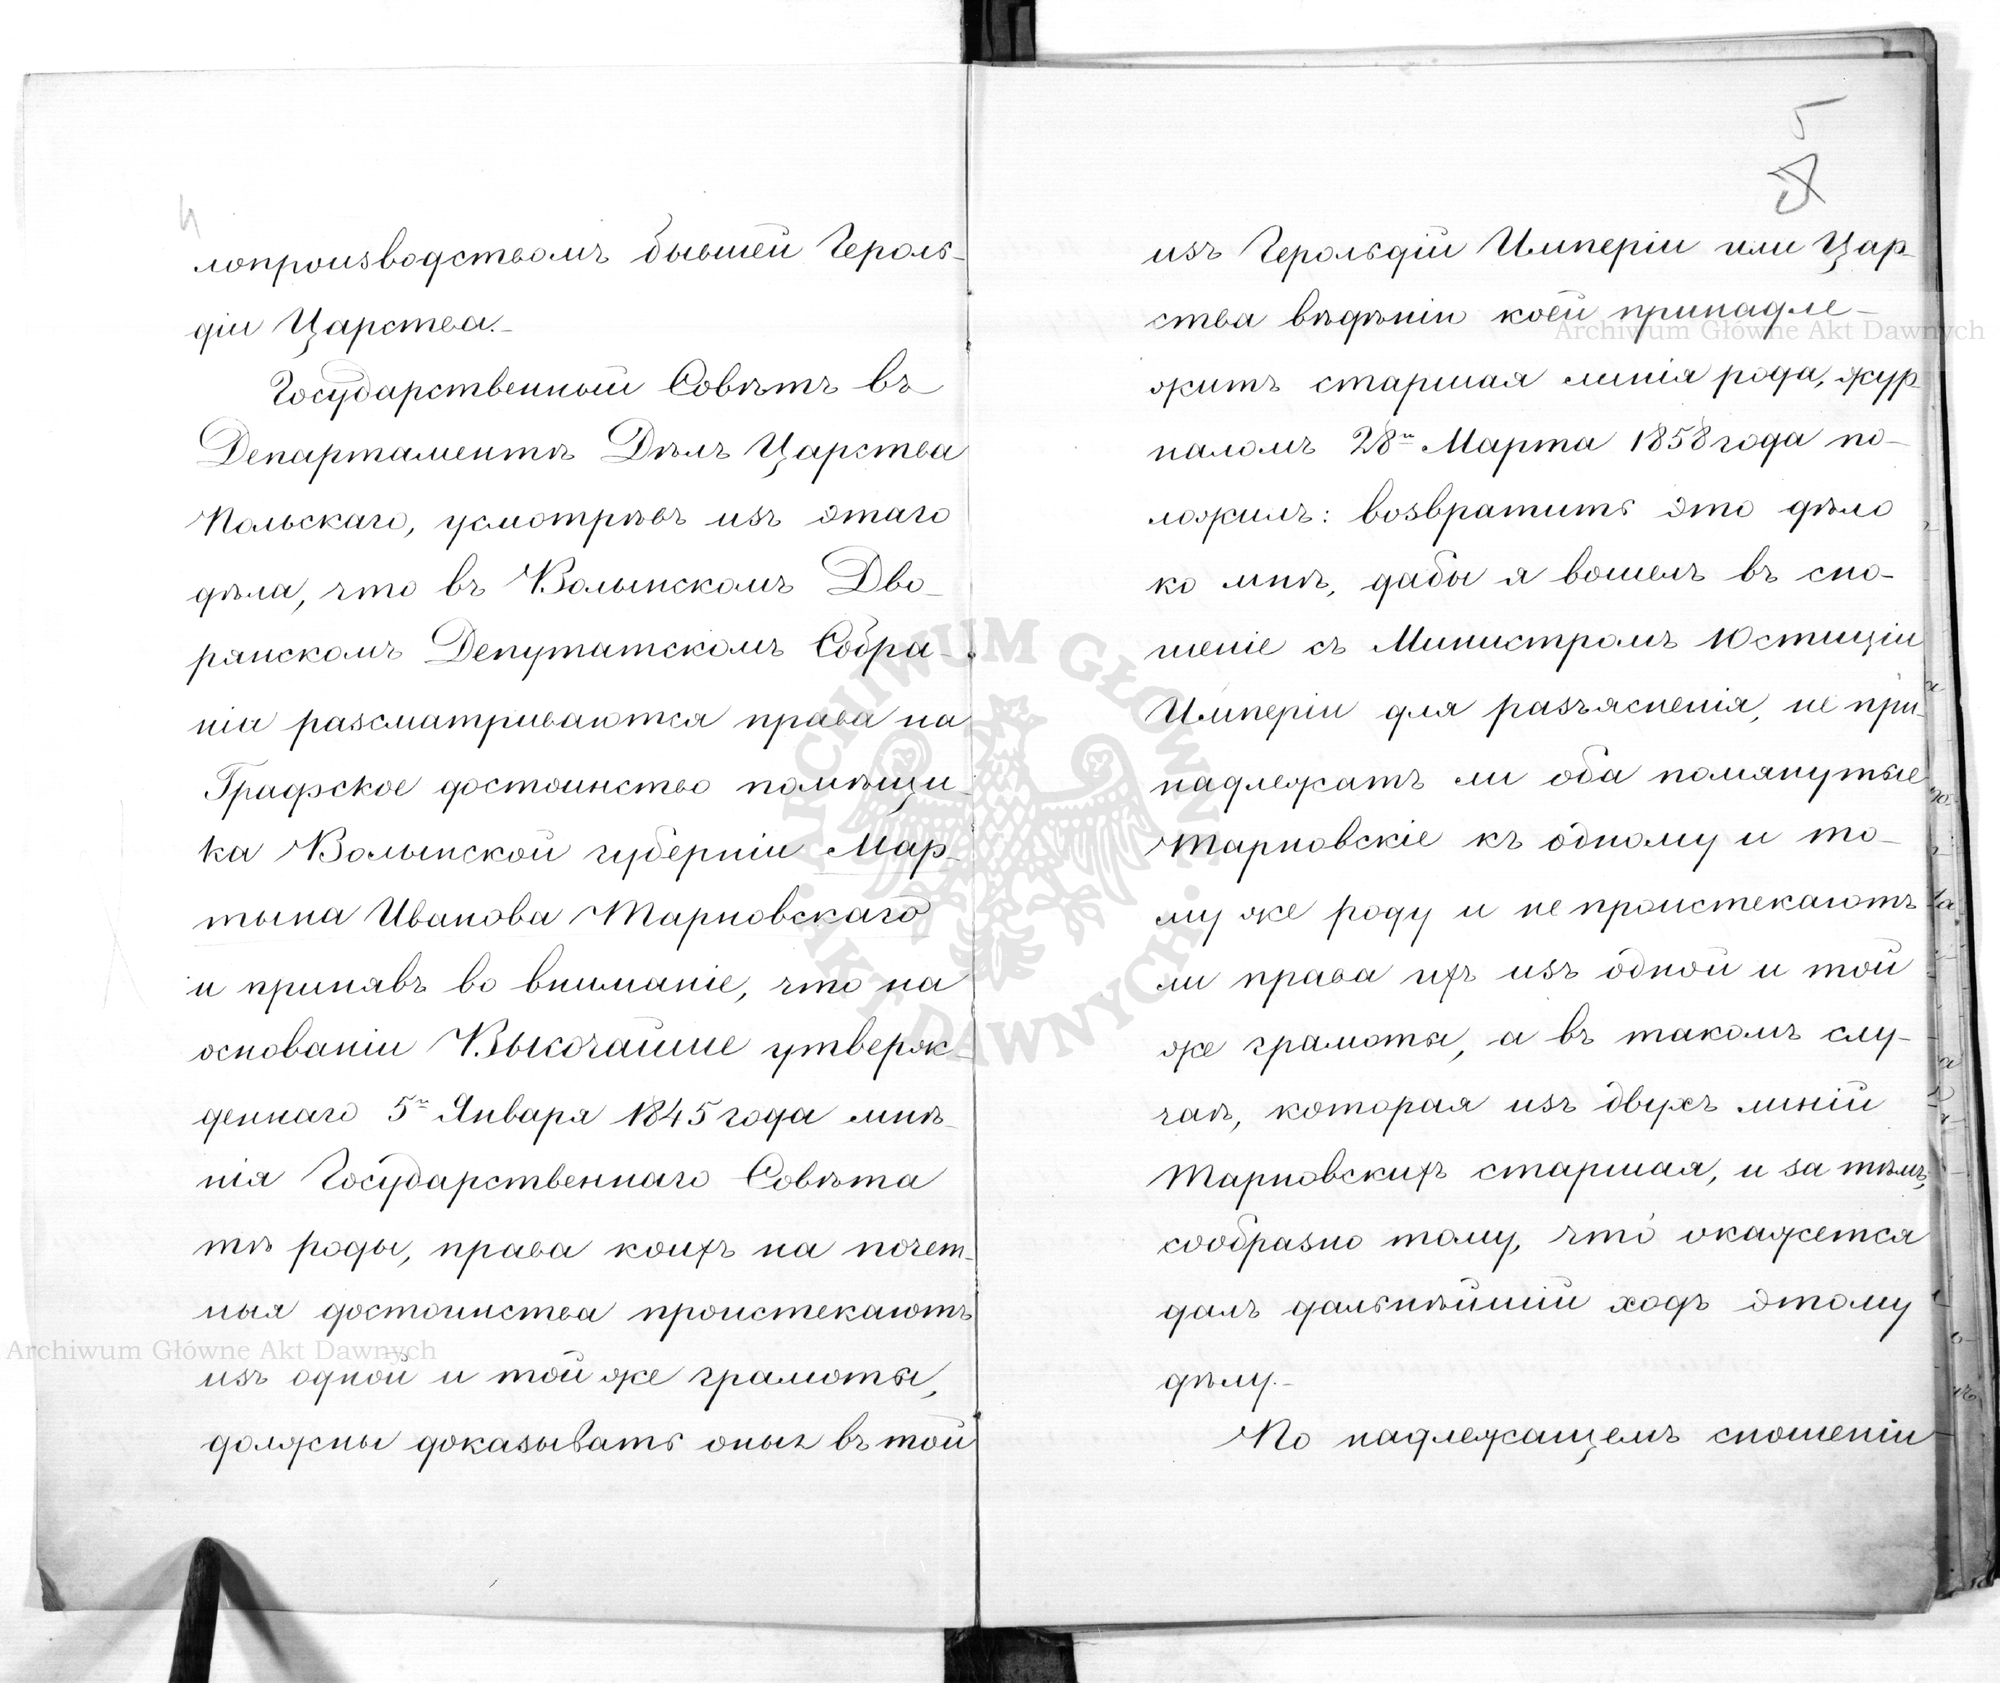 4
лопроизводствомъ бывшей Героль-
діи Царства.-
Государственный Совѣтъ въ
Департаментѣ Дѣлъ Царства
Польскаго, усмотрѣвъ изъ этаго
дѣла, что въ Волынскомъ Дво-
рянскомъ Депутатскомъ Собра-
ніи разсматриваются права на
Графское достоинство помѣщи-
ка Волынской губерніи Мар-
тына Иванова Тарновскаго
и принявъ во вниманіе, что на
основаніи Высочайше утверж-
деннаго 5го Января 1845 года мнѣ-
нія Государственнаго Совѣта
тѣ роды, права коихъ на почет-
ныя достоинства проистекаютъ
изъ одной и той же грамоты,
должны доказывать оныя въ той
5
изъ Герольдій Имперіи или Цар-
ства вѣдѣнію коей принадле-
житъ старшая линія рода, жур-
наломъ 28го Марта 1858 года по-
ложилъ: возвратить это дѣло
ко мнѣ, дабы я вошелъ въ сно-
шеніе съ Министромъ Юстиціи
Имперіи для разъясненія, не при-
надлежатъ ли оба помянутые
Тарновскіе къ одному и то-
му же роду и не проистекаютъ
ли права ихъ изъ одной и той
же грамоты, а въ такомъ слу-
чаѣ, которая изъ двухъ линій
Тарновскихъ старшая, и за тѣмъ,
сообразно тому, что окажется
далъ дальнѣйшій ходъ этому
дѣлу.-
По надлежащемъ сношеніи
Archiwum Główne Akt Dawnych
Archiwum Główne Akt Dawnych
ARCHIWUM GŁÓWNE · AKT DAWNYCH ·